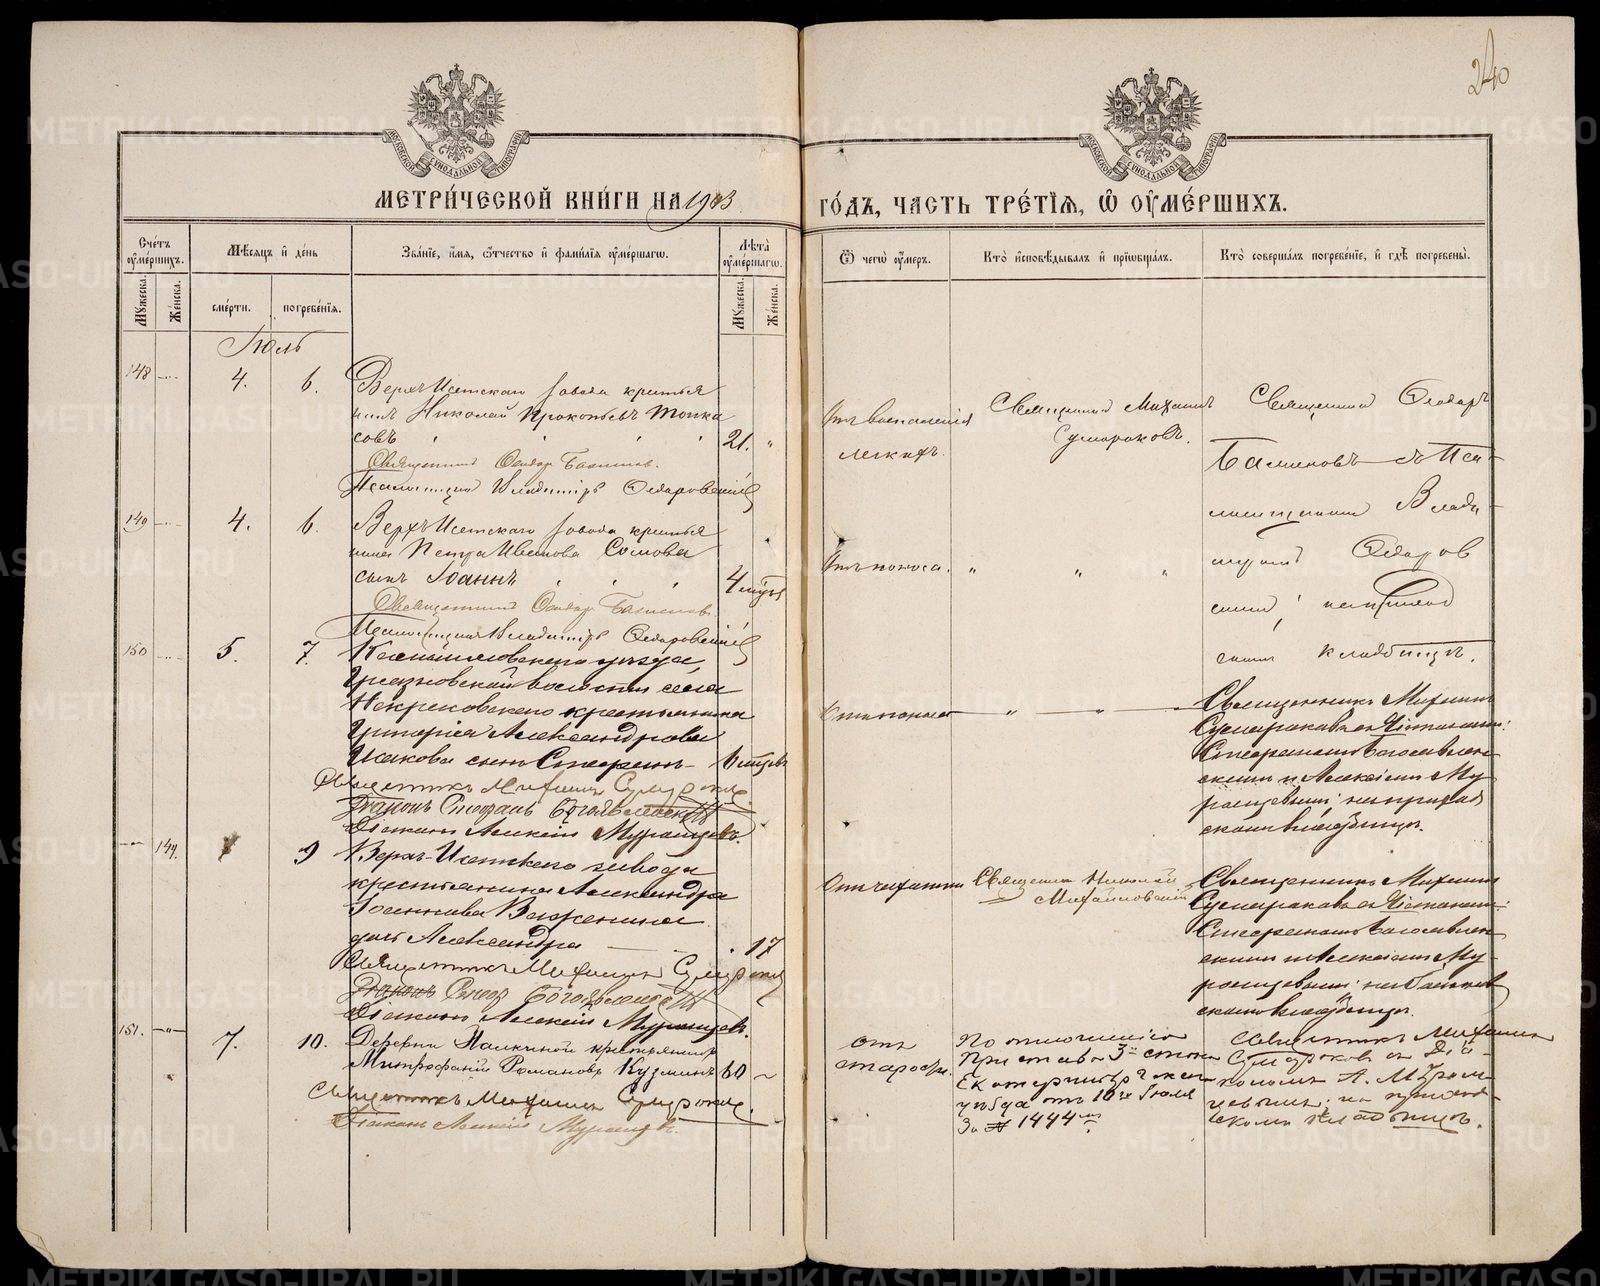 240
МОСКОВСКОЙ СѴНОДАЛЬНОЙ ТИПОГРАФІИ
МОСКОВСКОЙ СѴНОДАЛЬНОЙ ТИПОГРАФІИ
МЕТРИ́ЧЕСКОЙ КНИ́ГИ НА 1903
ГО́ДЪ, ЧАСТЬ ТРЕ́ТІѦ, Ѽ ОУМЕ́РШИХЪ.
Сче́тъ оуме́ршихъ.
Мѣ́сѧцъ и҆ де́нь
Зва́нїе, и҆́мѧ, ѻ҆́тчество и҆ фами́лїѧ оуме́ршагѡ.
Лѣ́та оуме́ршагѡ.
Ѿ чегѡ̀ оу́меръ.
Кто̀ и҆сповѣ́дывалъ и҆ прїѡбща́лъ.
Кто̀ соверша́лъ погребе́нїе, и҆ гдѣ̀ погребены̀.
Мꙋ́жеска.
Же́нска.
сме́рти.
погребе́нїѧ.
Мꙋ́жеска.
Же́нска.
Іюль
148 4. 6.
Верхъ Исетскаго завода крестья
нинъ Николай Прокопьевъ
совъ 21. "
Священникъ Ѳеодоръ
Псаломщикъ Владиміръ Ѳедоровскій
Отъ воспаленія
легкихъ.
Священникъ Михаилъ
Сумароковъ.
Священникъ Ѳеодоръ
съ Пса
ломщикомъ Влади
міромъ Ѳедоров
скимъ, на приход
скомъ кладбищѣ.
149 4. 6.
Верхъ Исетскаго завода крестья
нина Петра Иванова Сомова
сынъ Іоаннъ 4 мѣс.
Священникъ Ѳеодоръ
Псаломщикъ Владиміръ Ѳедоровскій
Отъ поноса. " " "
150 5. 7.
Камышловскаго уѣзда,
Грязновской волости села
Некрасовскаго крестьянина
Григорія Александрова
сынъ Стефанъ 6 мѣсяцевъ
Священникъ Михаилъ Сумароковъ.
Діаконъ Стефанъ Богоявленскій
Діаконъ Алексій Муромцевъ.
Отъ поноса " "
Священникъ Михаилъ
Сумароковъ съ Діаконами:
Стефаномъ Богоявлен
скимъ и Алексіемъ Му
ромцевымъ; на приход
скомъ кладбищѣ.
144. 9
Верхъ-Исетскаго завода
крестьянина Александра
Іоаннова Важенина
дочь Александра 17
Священникъ Михаилъ Сумароковъ
Діаконъ Богоявленскій
Діаконъ Алексій Муромцевъ.
Отъ чахотки
Священникъ Николай
Михайловскій
Священникъ Михаилъ
Сумароковъ съ Діаконами:
Стефаномъ Богоявлен
скимъ и Алексіемъ Му-
ромцевымъ;
скомъ кладбищѣ.
151. " 7. 10.
Деревни Палкиной крестьянинъ
Митрофаній Романовъ Кузминъ 60
Священникъ Михаилъ Сумароковъ.
Діаконъ Алексій Муромцевъ.
отъ
старости.
По отношенію
Пристава 3го стана
Екатеринбургскаго
уѣзда отъ 10го Іюля
За № 1444мъ
Священникъ Михаилъ
Сумароковъ съ Діа-
кономъ А. Муром-
цевымъ; на приход-
скомъ кладбищѣ.